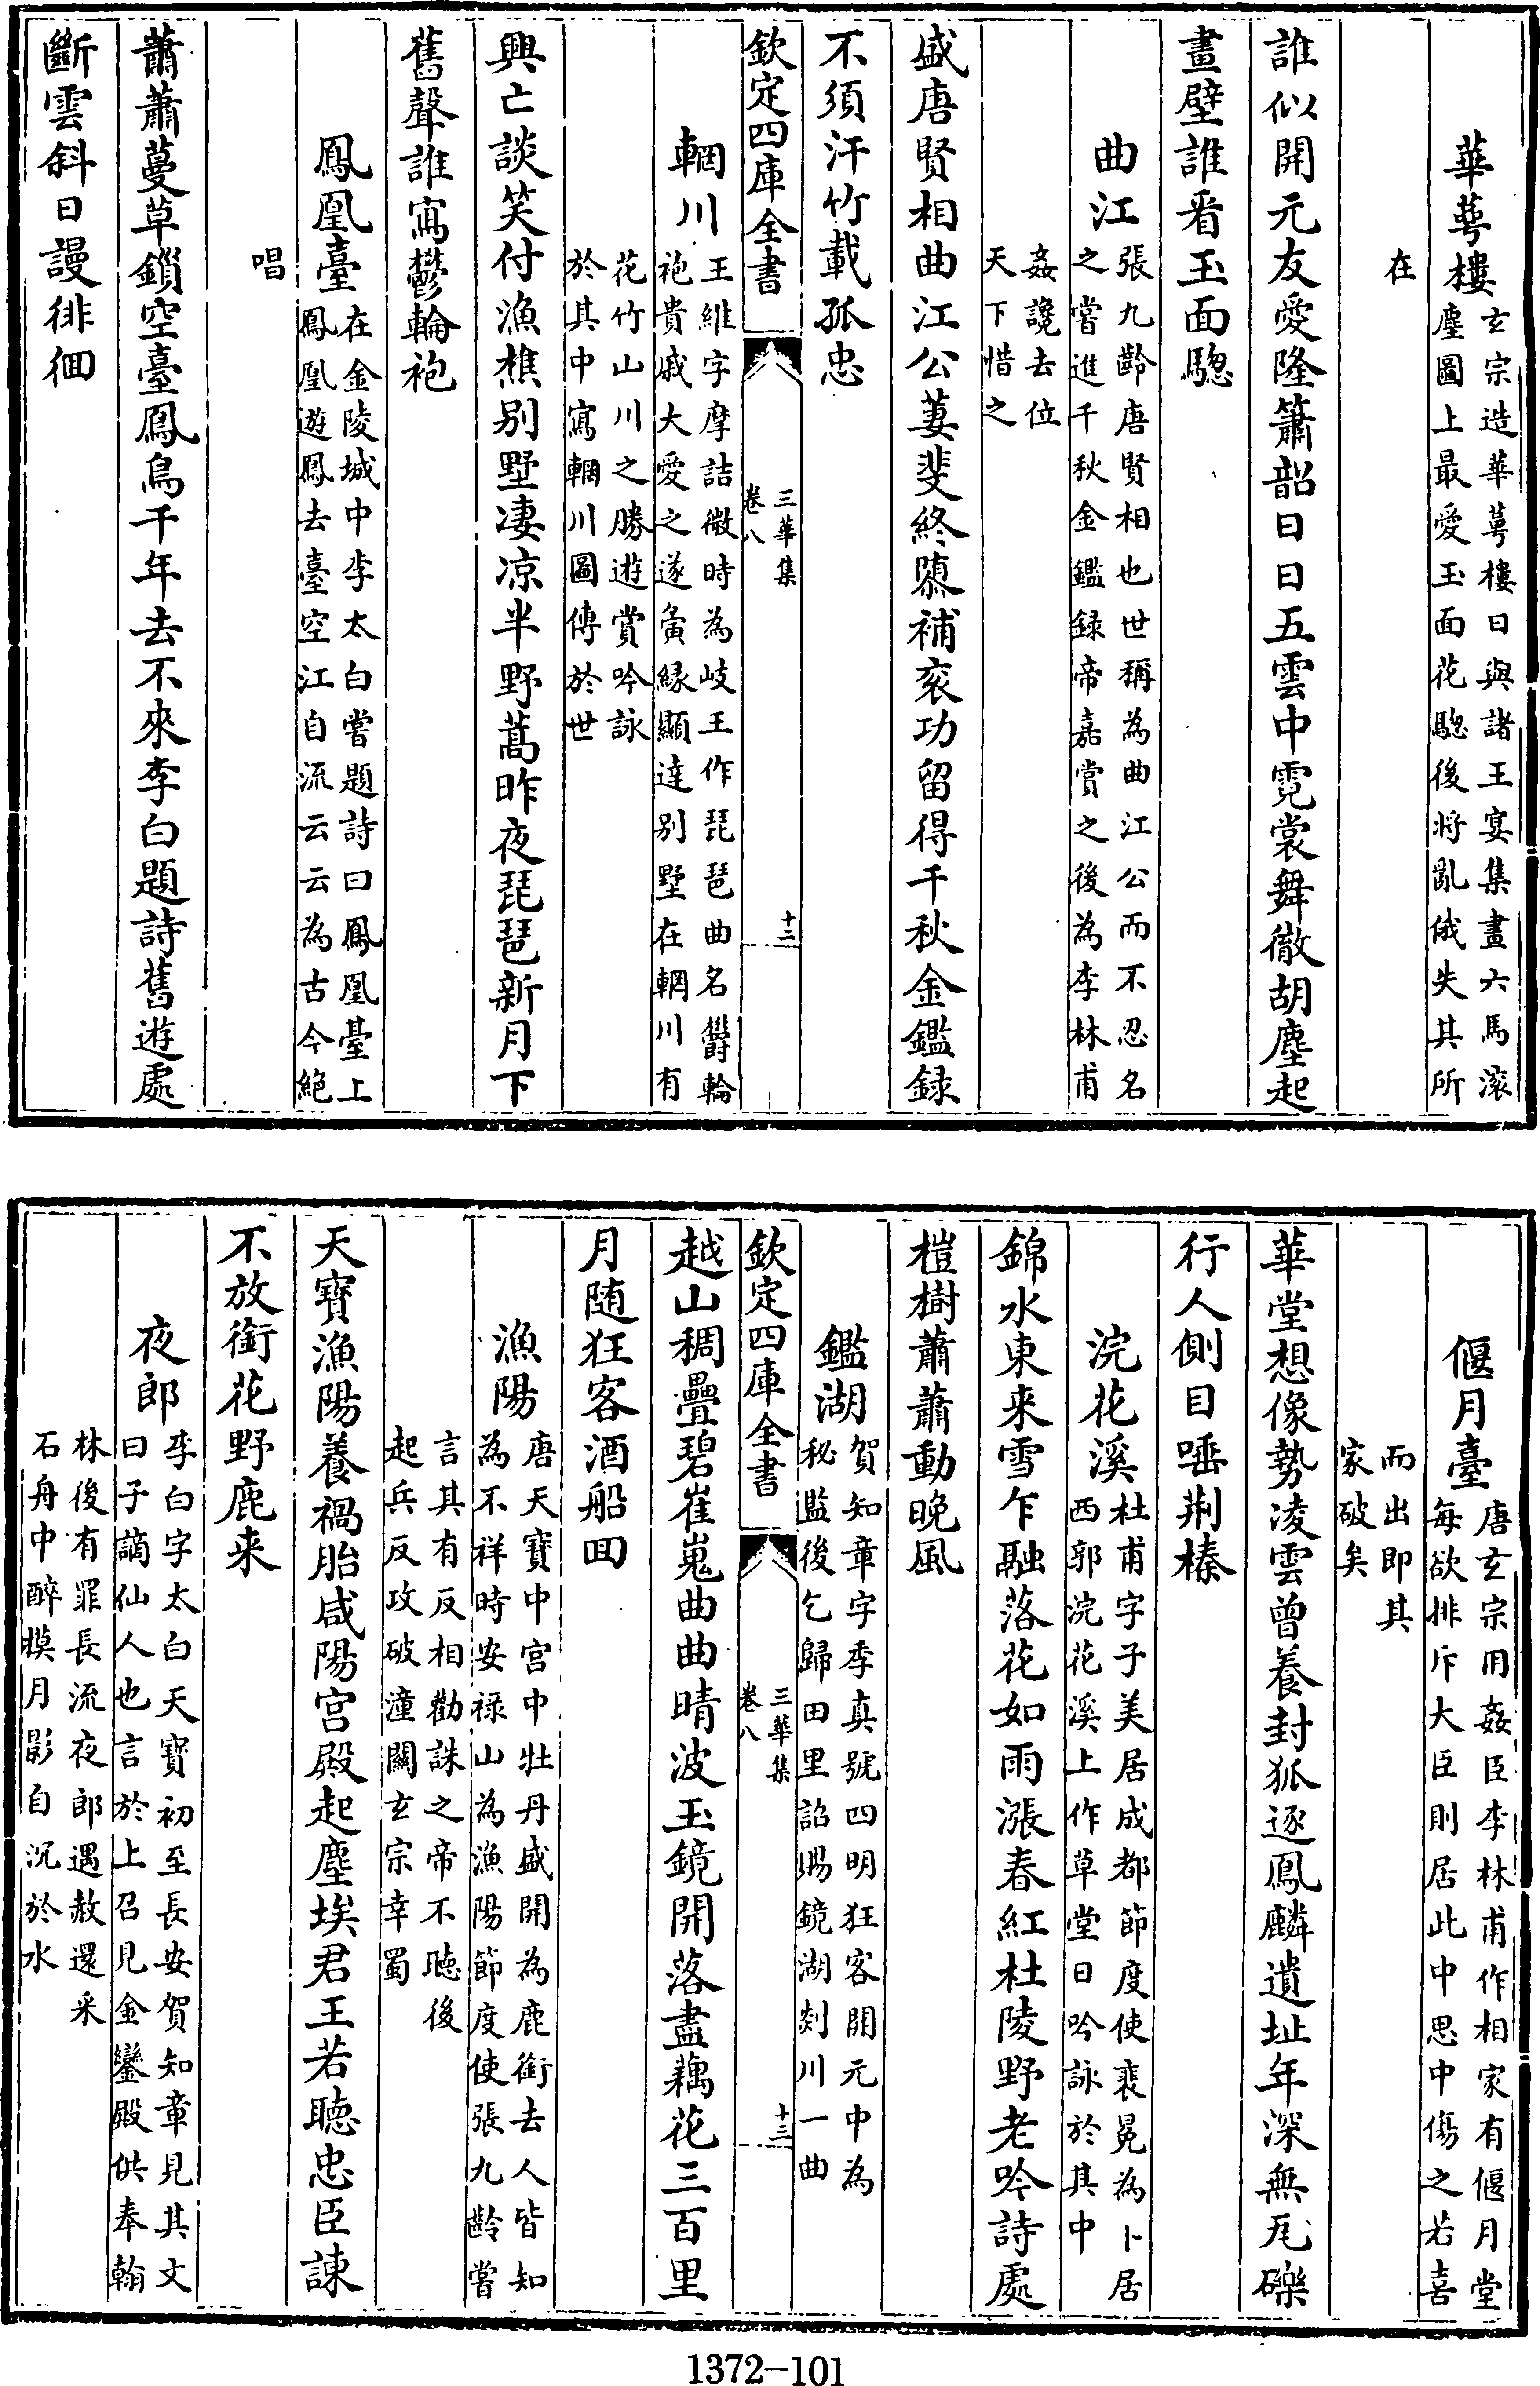 華萼樓玄宗造華萼樓日與諸王宴集畫六馬滚
塵圖上最愛玉面花騘後將亂俄失其所
在
誰似開元友愛隆簫韶日日五雲中霓裳舞徹胡塵起
畫壁誰看玉面騘
曲江張九齡唐賢相也世稱為曲江公而不忍名
之嘗進千秋金鑑録帝嘉賞之後為李林甫
姦讒去位
天下惜之
盛唐賢相曲江公萋斐終隳補衮功留得千秋金鑑録
不須汗竹載孤忠
欽定四庫全書
三華集
卷八
十二
輞川王維字摩詰微時為岐王作琵琶曲名欝輪
袍貴戚大愛之遂夤縁顯達别墅在輞川有
花竹山川之勝遊賞吟詠
於其中寫輞川圖傳於世
興亡談笑付漁樵别墅凄凉半野蒿昨夜琵琶新月下
舊聲誰寫鬱輪袍
鳳凰臺在金陵城中李太白嘗題詩曰鳳凰臺上
鳳凰遊鳳去臺空江自流云云為古今絶
唱
蕭蕭蔓草鎖空臺鳳鳥千年去不來李白題詩舊遊處
斷雲斜日謾徘徊
偃月臺唐玄宗用姦臣李林甫作相家有偃月堂
每欲排斥大臣則居此中思中傷之若喜
而出即其
家破矣
華堂想像勢凌雲曾養封狐逐鳳麟遺址年深無瓦礫
行人側目唾荆榛
浣花溪杜甫字子美居成都節度使裴冕為卜居
西郭浣花溪上作草堂日吟詠於其中
錦水東来雪乍融落花如雨漲春紅杜陵野老吟詩處
榿樹蕭蕭動晚風
鑑湖賀知章字季真號四明狂客開元中為
秘監後乞歸田里詔賜鏡湖剡川一曲
欽定四庫全書
三華集
卷八
十三
越山稠疊碧崔嵬曲曲晴波玉鏡開落盡藕花三百里
月随狂客酒船回
漁陽唐天寶中宫中牡丹盛開為鹿銜去人皆知
為不祥時安禄山為漁陽節度使張九齡嘗
言其有反相勸誅之帝不聽後
起兵反攻破潼關玄宗幸蜀
天寶漁陽養禍胎咸陽宫殿起塵埃君王若聽忠臣諫
不放銜花野鹿来
夜郎李白字太白天寶初至長安賀知章見其文
曰子謫仙人也言於上召見金鑾殿供奉翰
林後有罪長流夜郎遇赦還采
石舟中醉摸月影自沉於水
1372-101